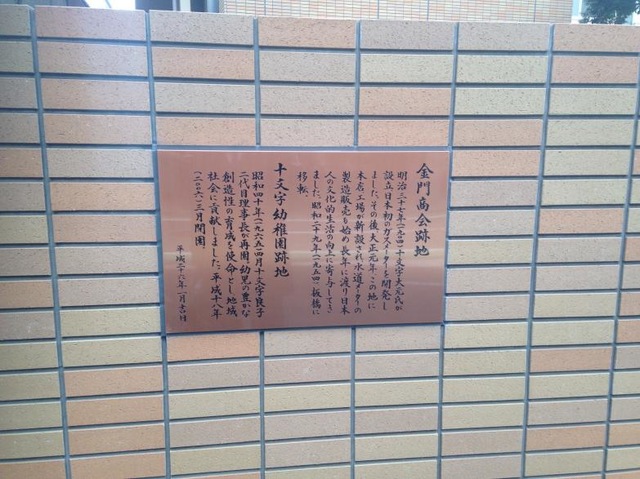 金門商会跡地
明治三十七年(一九〇四)十文字大元氏が
設立日本初のガスメータを開発し
ました。その後大正元年、この地に
本店工場が新設され水道メータの
製造販売も始め長年に渡り日本
人の文化的生活の向上に寄与してき
ました。昭和二十九年(一九五四)板橋に
移転。
十文字幼稚園跡地
昭和四十年(一九六五)四月十文字良子
二代目理事長が再園。幼児の豊かな
創造性の育成を使命とし地域
社会に貢献しました。平成十八年
(二〇〇六)三月閉園。
平成二十六年一月吉日